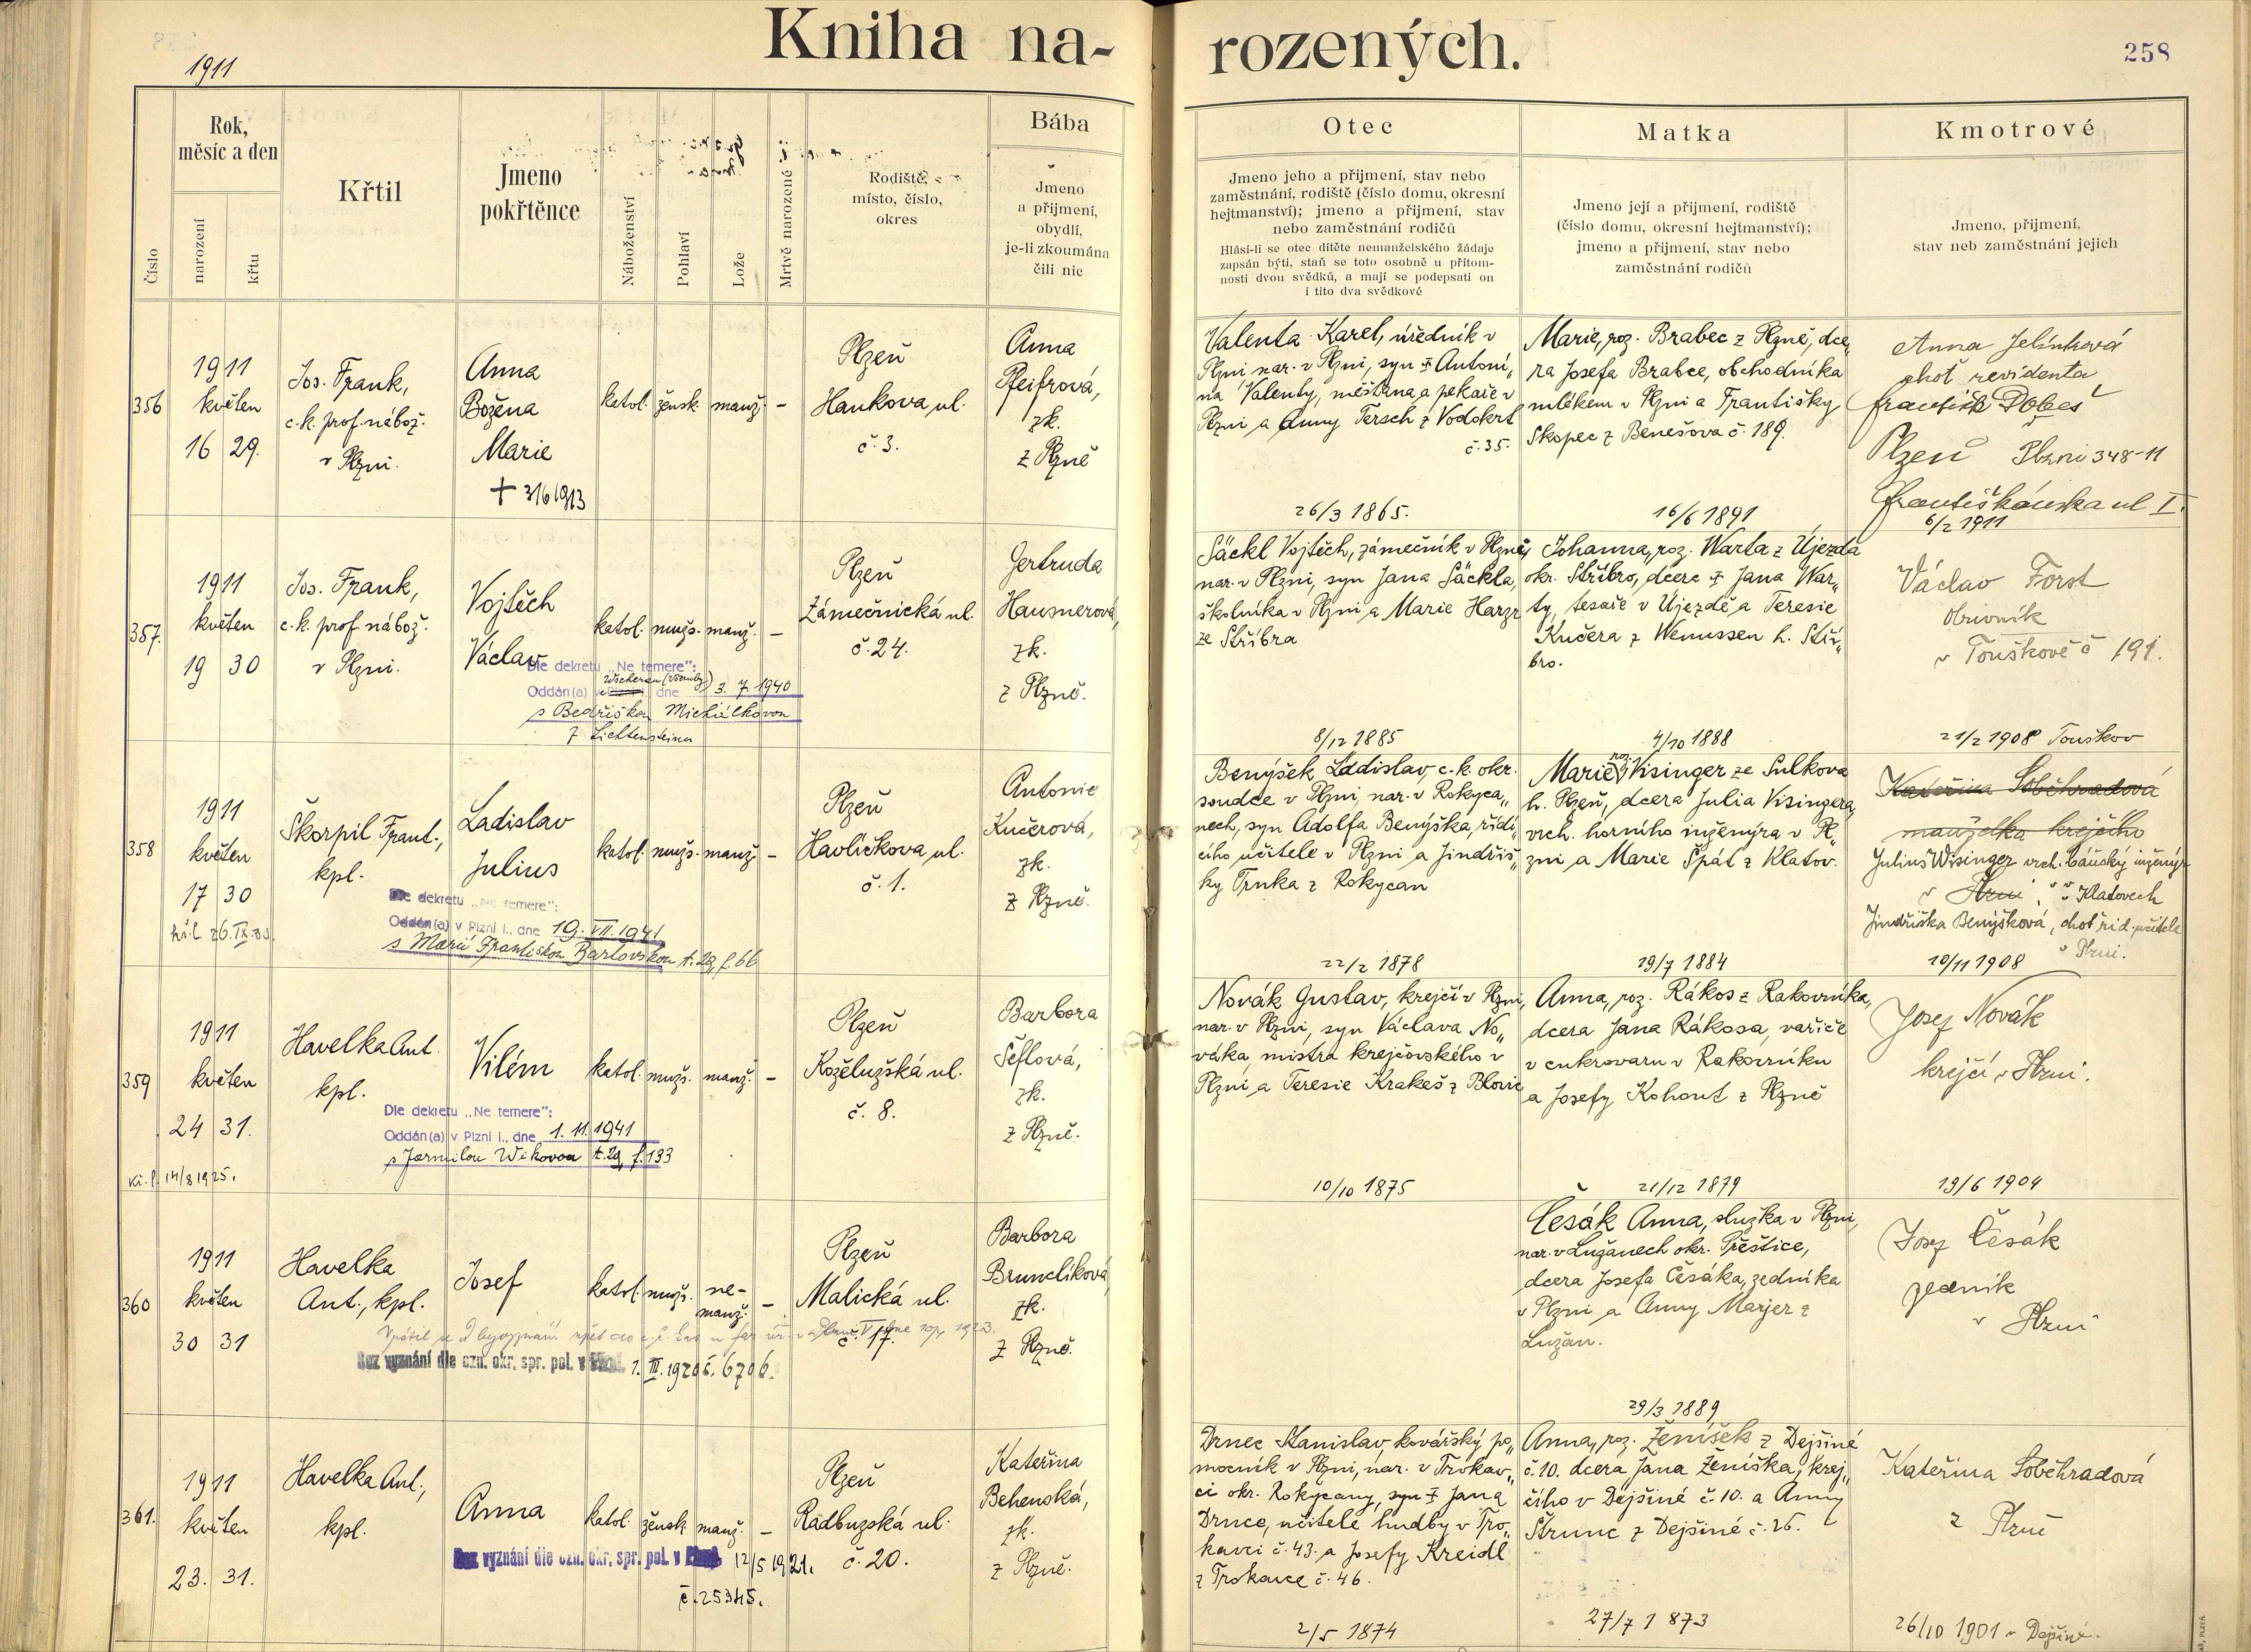 Kniha na-
rozených.
258
1911
Číslo
Rok,
měsíc a den
narození
křtu
Křtil
Jmeno
pokřtěnce
Náboženství
Pohlaví
Lože
Mrtvě narozené
Rodiště,
místo, číslo,
okres
Bába
Jmeno
a přijmení,
obydlí,
je-li zkoumána
čili nic
Otec
Jmeno jeho a přijmení, stav nebo
zaměstnání, rodiště (číslo domu, okresní
hejtmanství); jmeno a přijmení, stav
nebo zaměstnání rodičů
Hlásí-li se otec dítěte nemanželského žádaje
zapsán býti, staň se toto osobně u přítom-
nosti dvou svědků, a mají se podepsati on
i tito dva svědkové
Matka
Jmeno její a přijmení, rodiště
(číslo domu, okresní hejtmanství);
jmeno a přijmení, stav nebo
zaměstnání rodičů
Kmotrové
Jmeno, přijmení,
stav neb zaměstnání jejich
356
1911
květen
16 29.
Jos. Frank,
c.k. prof. nábož.
v Plzni.
Anna
Božena
Marie
+ 3/6 1913
katol. žensk. manž. –
Plzeň
Hankova ul.
č. 3.
Anna
Pfeifrová,
zk.
z Plzně
Valenta Karel, úředník v
Plzni nar. v Plzni, syn + Antoní„
na Valenty, měšťana a pekaře v
Plzni a Anny Tersch z Vodokrt
č. 35.
26/3 1865.
Marie, roz. Brabec z Plzně, dce„
ra Josefa Brabce, obchodníka
mlékem v Plzni a Františky
Skopec z Benešova č. 189.
16/6 1891
Anna Jelínková
choť revidenta
Plzeň Plzni 348-11
Františkánska ul I.
6/2 1911
357.
1911
květen
19 30
Jos. Frank,
c.k. prof. nábož.
v Plzni.
Vojtěch
Václav
katol. mužs. manž. –
Dle dekretu „Ne temere":
Oddán(a) v Plzni dne 3. 7. 1940
s Bedřiškou Michálkovou
z Lichtensteinu
Plzeň
Zámečnická ul.
č. 24.
Gertruda
Hausnerová,
zk.
z Plzně.
Säckl Vojtěch, zámečník v Plzně,
nar. v Plzni, syn Jana Säckla,
školníka v Plzni a Marie Harzr
ze Stříbra
8/12 1885
Johanna, roz. Warta z Újezda
okr. Stříbro, dcera + Jana War„
ty, tesaře v Újezdě a Teresie
Kučera z Wenussen h. Stří„
bro.
4/10 1888
Václav Forst
obuvník
v Touškově č 191.
21/2 1908 Touškov
358
1911
květen
17 30
kř.l. 26.IX.33.
Škorpil Frant.,
kpl.
Ladislav
Julius
katol. mužs. manž. –
Dle dekretu „Ne temere":
Oddán(a) v Plzni I., dne 19. VII. 1941
s Marií Františkou Bartovskou t. 29, f. 66
Plzeň
Havlíčkova ul.
č. 1.
Antonie
Kučerová,
zk.
z Plzně.
Benýšek Ladislav, c.k. okr.
soudce v Plzni, nar. v Rokyca„
nech, syn Adolfa Benýška, řídí„
cího učitele v Plzni a Jindřiš„
ky Trnka z Rokycan
22/2 1878
Marie roz. Visinger ze Sulkova
h. Plzeň, dcera Julia Visingera,
vrch. horního inženýra v Pl„
zni a Marie Špát z Klatov.
19/7 1884
Kateřina Soběhradová
manželka krejčího
Julius Wisinger vrch. báňský inženýr
v Plzni, v Klatovech
Jindřiška Benýšková, choť říd. učitele
v Plzni.
10/11 1908
359
1911
květen
24 31.
Kř. l. 14/8 1925.
Havelka Ant.
kpl.
Vilém
katol. mužs. manž. –
Dle dekretu „Ne temere":
Oddán(a) v Plzni I., dne 1. 11. 1941
s Jarmilou Wikovou t. 29, f. 133
Plzeň
Koželužská ul.
č. 8.
Barbora
Šeflová,
zk.
z Plzně.
Novák Gustav, krejčí v Plzni,
nar. v Plzni, syn Václava No„
váka, mistra krejčovského v
Plzni a Teresie Krakeš z Blovic
10/10 1875
Anna, roz. Rákos z Rakovníka,
dcera Jana Rákosa, vařiče
v cukrovaru v Rakovníku
a Josefy Kohout z Plzně
21/12 1879
Josef Novák
krejčí v Plzni.
19/6 1904
360
1911
květen
30 31
Havelka
Ant., kpl.
Josef
katol. mužs. ne-
manž. –
Bez vyznání dle ozn. okr. spr. pol. v Plzni 1. III. 1920 č. 6706.
Plzeň
Malická ul.
č. 17.
Barbora
Brunclíková,
zk.
z Plzně.
Česák Anna, služka v Plzni,
nar. v Lužanech okr. Přeštice,
dcera Josefa Česáka, zedníka
v Plzni a Anny Majer z
Lužan.
29/3 1889
Josef Česák
zedník
v Plzni
361.
1911
květen
23. 31.
Havelka Ant.,
kpl.
Anna
katol. žensk. manž. –
Bez vyznání dle ozn. okr. spr. pol. v Plzni 12/5 1921.
č. 25345.
Plzeň
Radbuzská ul.
č. 20.
Kateřina
Behenská,
zk.
z Plzně.
Drnec Stanislav, kovářský po„
mocník v Plzni, nar. v Trokav„
ci okr. Rokycany, syn + Jana
Drnce, učitele hudby v Tro„
kavci č. 43. a Josefy Kreidl
z Trokavce č. 46.
2/5 1874
Anna, roz. Ženíšek z Dejšiné
č. 10. dcera Jana Ženíška, krej„
čího v Dejšiné č. 10. a Anny
Štrunc z Dejšiné č. 26.
27/7 1873
Kateřina Soběhradová
z Plzně
26/10 1901 v Dejšiné.